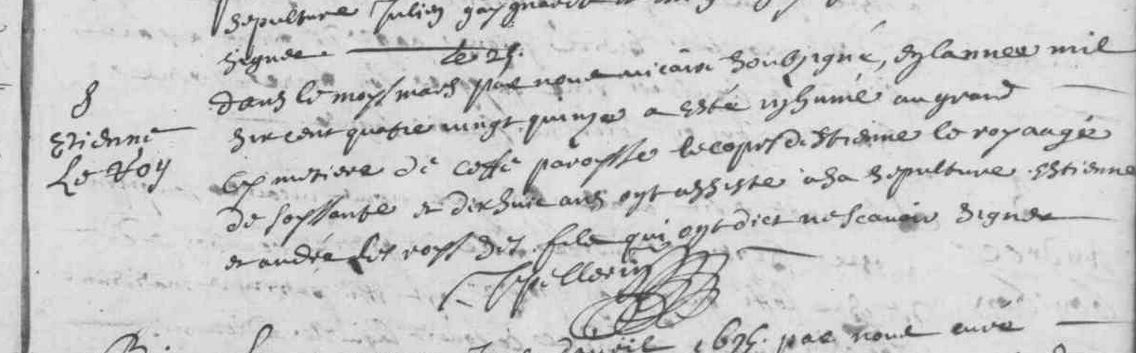 sepulture Julien
signer le 25.
dans le moys mars par nous vicaire soubsigné, en lannee mil
six cent quatre vingt quinze a esté inhumé au grand
S
Estienne
Le Roy
cymetiere de ceste paroysse le corps destienne le roy aagé
de soyssante et dix huit ans ont assisté a sa sepulture Estienne
et andré les roys dit fils qui ont dict ne scavoir signer
Pellerin
1695. par nous curé